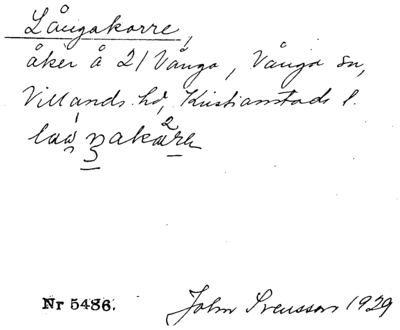 Långakorre,
åker å 21 Vånga, Vånga sn,
Villands hd, Kristianstads l.
Nr 5486. John Svensson 1929